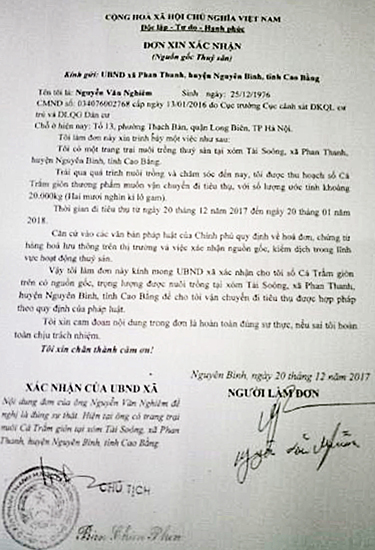 CỘNG HOÀ XÃ HỘI CHỦ NGHĨA VIỆT NAM
Độc lập - Tự do - Hạnh phúc
ĐƠN XIN XÁC NHẬN
(Nguồn gốc Thuỷ sản)
Kính gửi: UBND xã Phan Thanh, huyện Nguyên Bình, tỉnh Cao Bằng
Tên tôi là: Nguyễn Văn Nghiêm Sinh ngày: 25/12/1976
CMND số: 034076002768 cấp ngày 13/01/2016 do Cục trưởng Cục cảnh sát ĐKQL cư
trú và DLQG Dân cư
Chỗ ở hiện nay: Tổ 13, phường Thạch Bàn, quận Long Biên, TP Hà Nội.
Tôi làm đơn này xin trình bày một việc như sau:
Tôi có một trang trại nuôi trồng thuỷ sản tại xóm Tài Soỏng, xã Phan Thanh,
huyện Nguyên Bình, tỉnh Cao Bằng.
Trải qua quá trình nuôi trồng và chăm sóc đến nay, tôi được thu hoạch số Cá
Trầm giòn thương phẩm muốn vận chuyển đi tiêu thụ, với số lượng ước tính khoảng
20.000kg (Hai mươi nghìn ki lô gam).
Thời gian đi tiêu thụ từ ngày 20 tháng 12 năm 2017 đến ngày 20 tháng 01 năm
2018.
Căn cứ vào các văn bản pháp luật của Chính phủ quy định về hoá đơn, chứng từ
hàng hoá lưu thông trên thị trường và việc xác nhận nguồn gốc, kiểm dịch trong lĩnh
vực hoạt động thuỷ sản.
Vậy tôi làm đơn này kính mong UBND xã xác nhận cho tôi số Cá Trầm giòn
trên có nguồn gốc, trọng lượng được nuôi trồng tại xóm Tài Soỏng, xã Phan Thanh,
huyện Nguyên Bình, tỉnh Cao Bằng để cho tôi vận chuyển đi tiêu thụ được hợp pháp
theo quy định của pháp luật.
Tôi xin cam đoan nội dung trong đơn là hoàn toàn đúng sự thực, nếu sai tôi hoàn
toàn chịu trách nhiệm.
Tôi xin chân thành cảm ơn!
Nguyên Bình, ngày 20 tháng 12 năm 2017
XÁC NHẬN CỦA UBND XÃ
Nội dung đơn của ông Nguyễn Văn Nghiêm đề
nghị là đúng sự thật. Hiện tại ông có trang trại
nuôi Cá Trầm giòn tại xóm Tài Soỏng, xã Phan
Thanh, huyện Nguyên Bình, tỉnh Cao Bằng.
CHỦ TỊCH
NGƯỜI LÀM ĐƠN